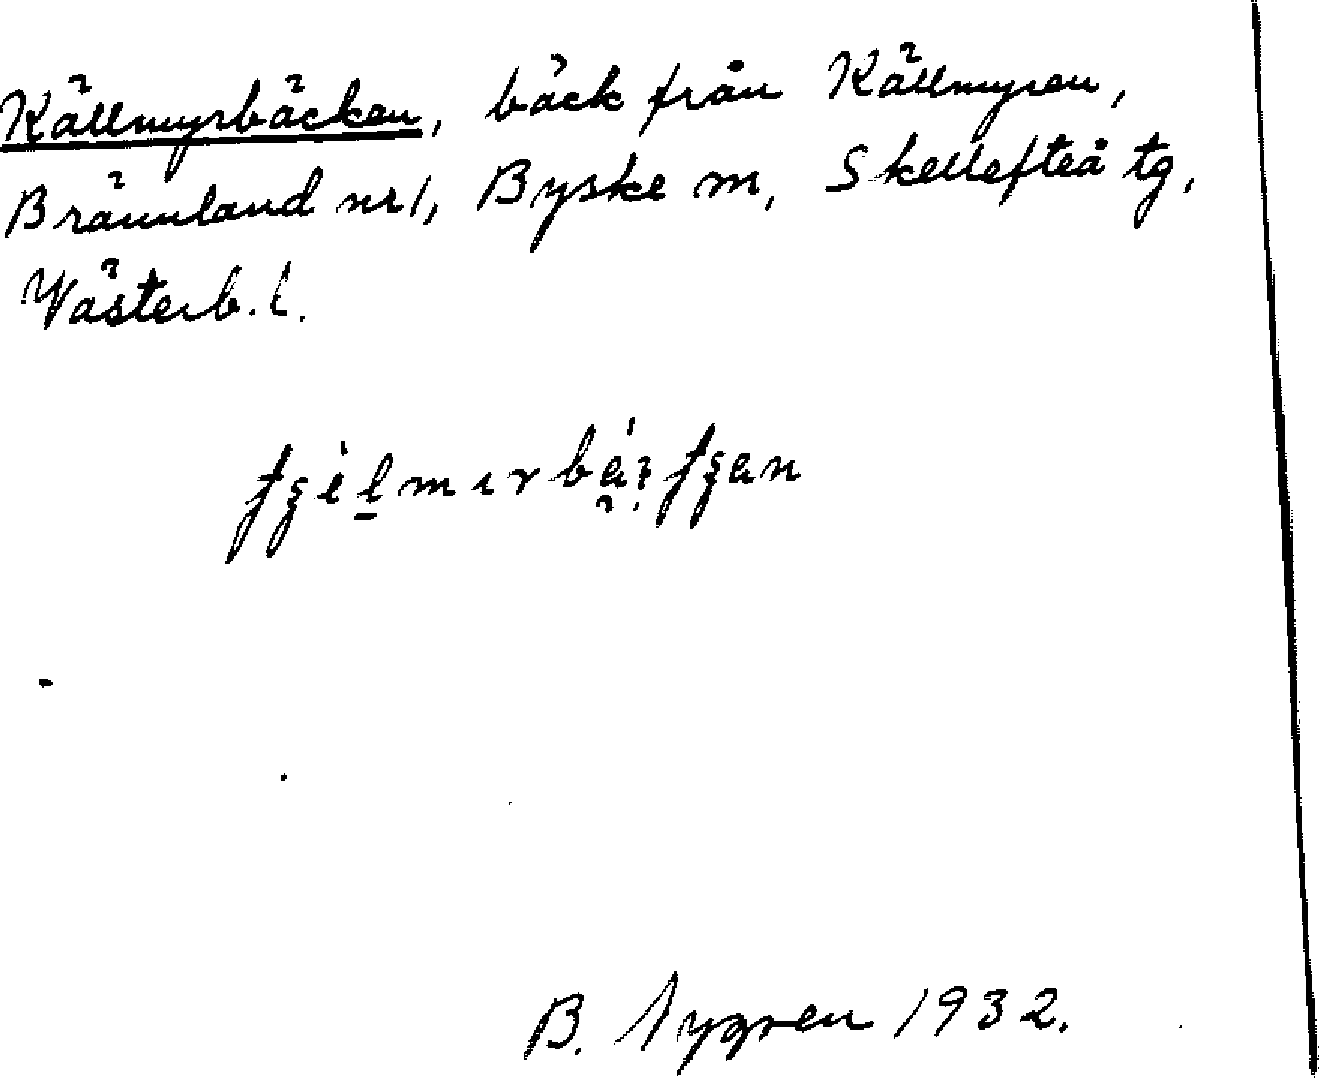 Källmyrbäcken, bäck från Källmyren,
Brännland nr 1, Byske m, Skellefteå tg,
Västerb. l.
B. Nygren 1932.